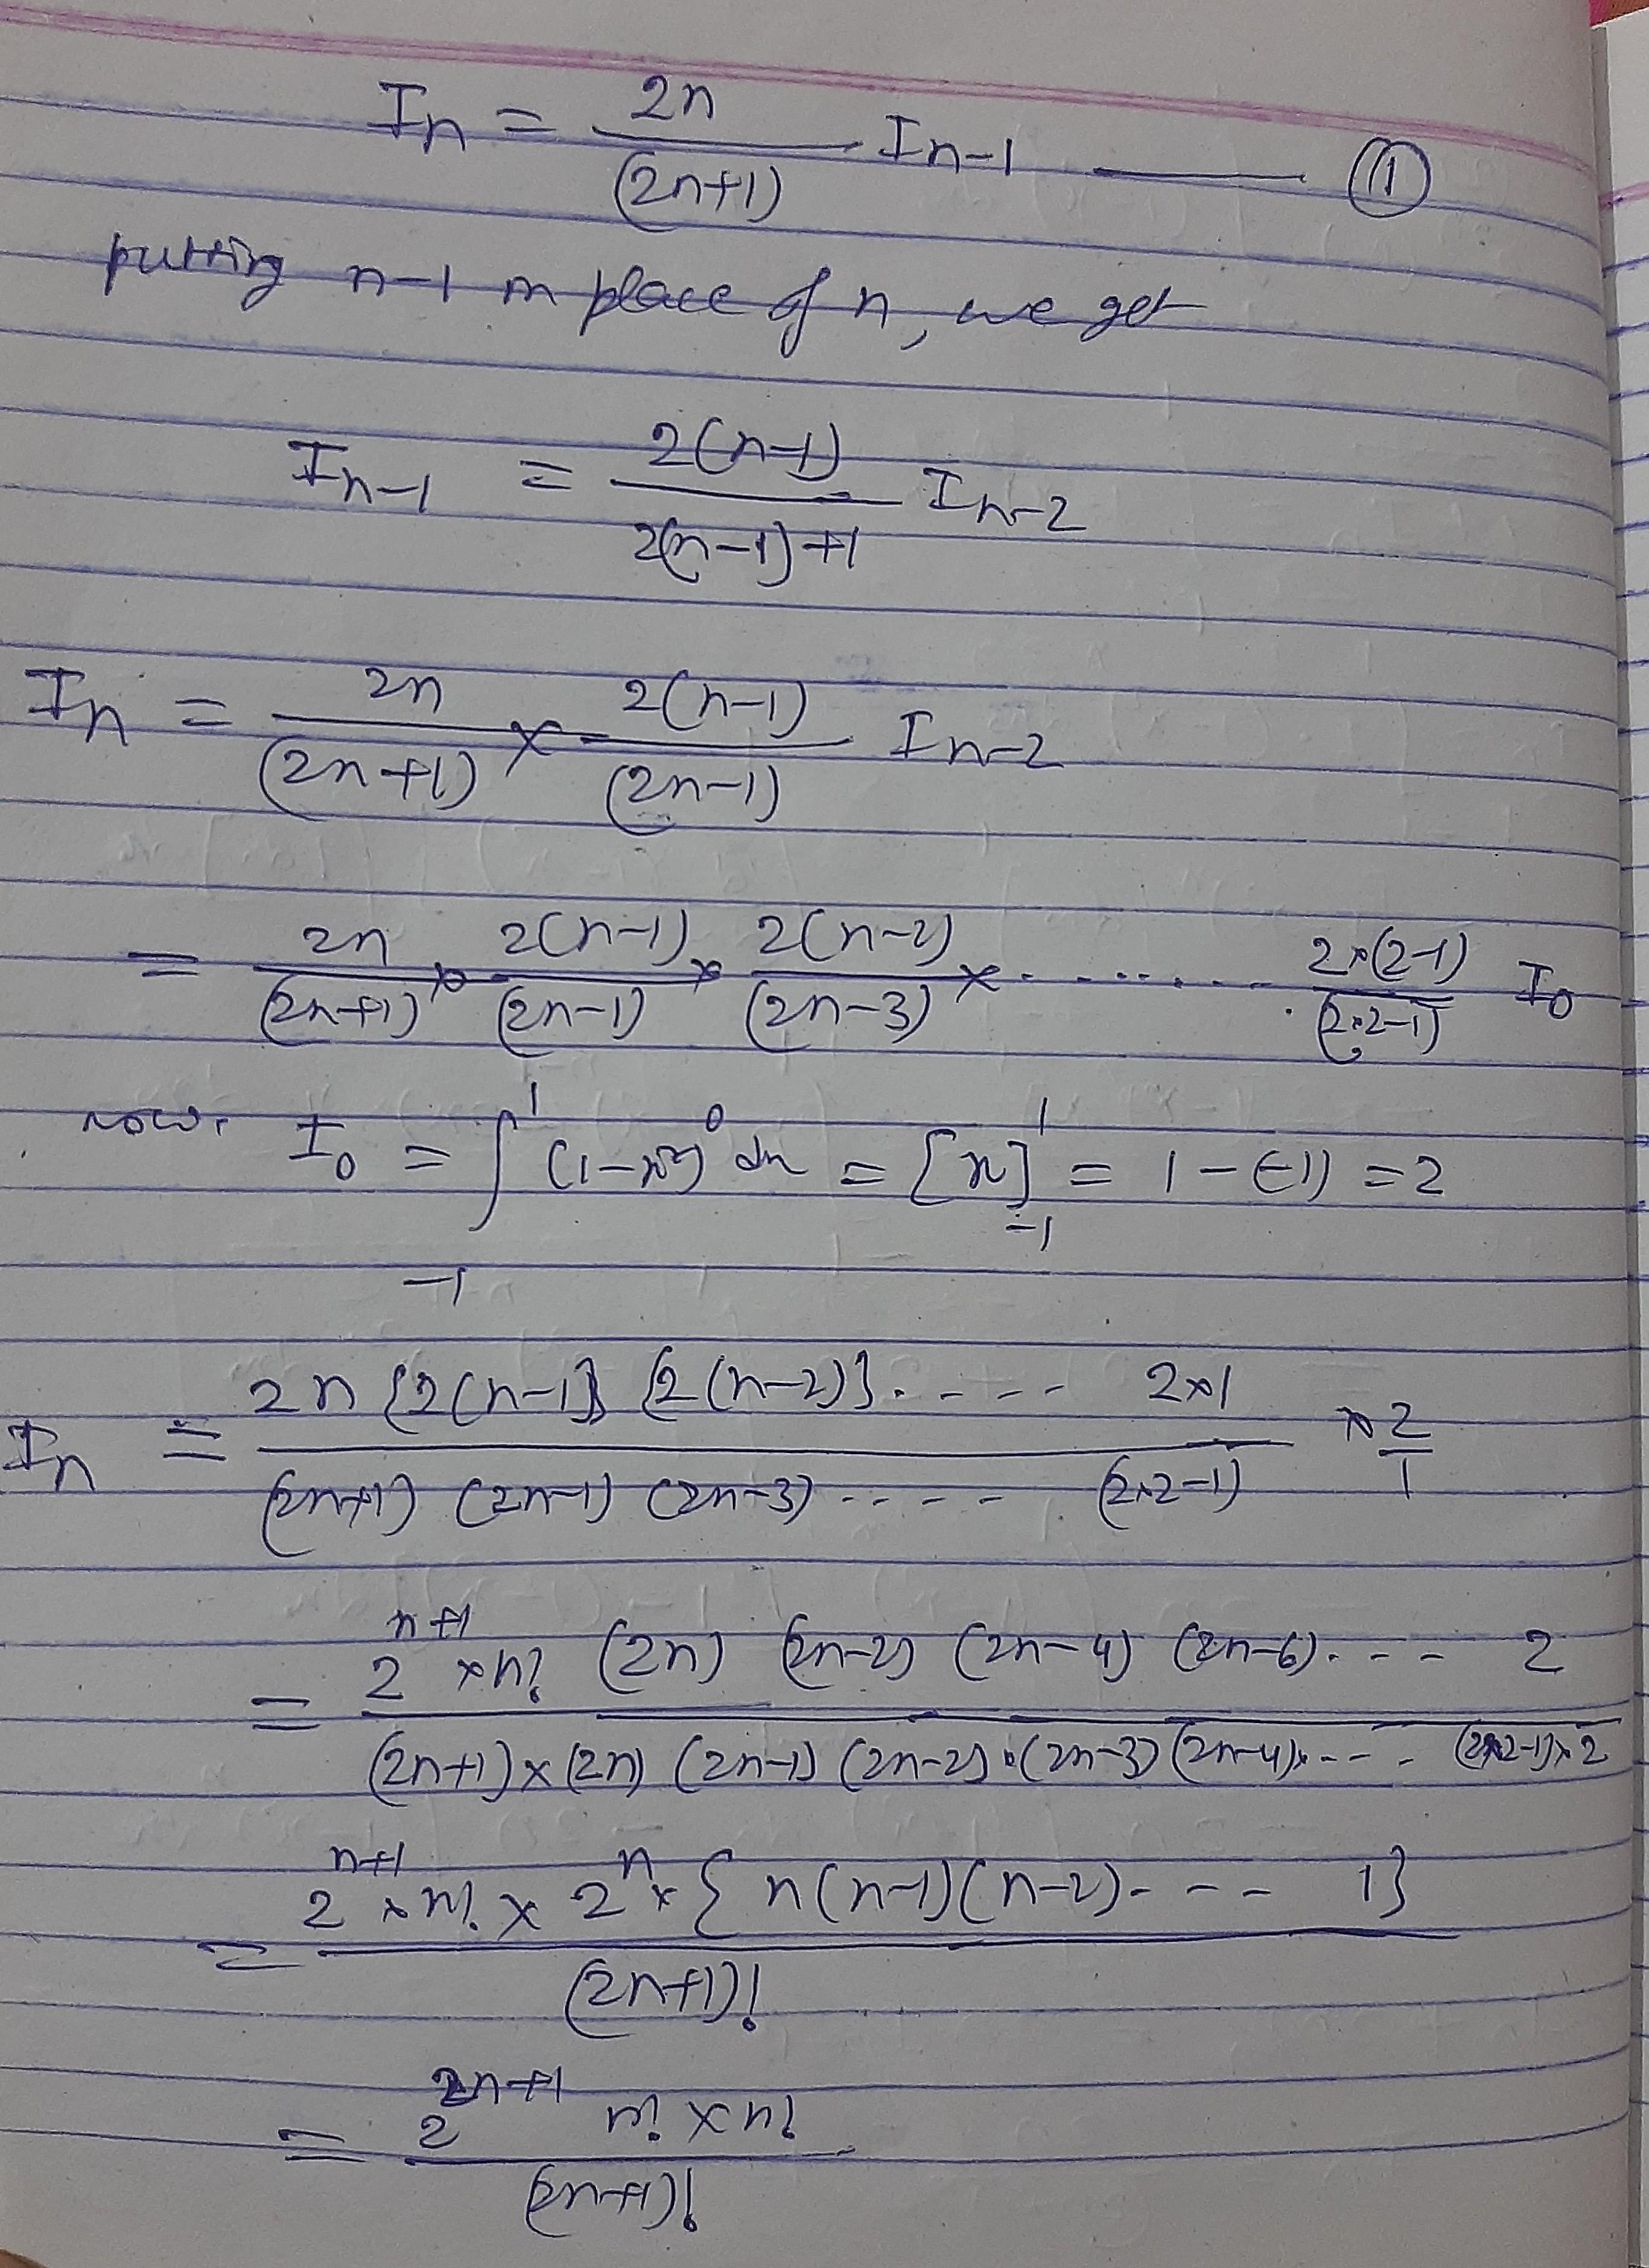 I_n = 2n/(2n+1) I_{n-1} —— (1)
putting n-1 in place of n, we get
I_{n-1} = 2(n-1)/(2(n-1)+1) I_{n-2}
I_n = 2n/(2n+1) × 2(n-1)/(2n-1) I_{n-2}
= 2n/(2n+1) × 2(n-1)/(2n-1) × 2(n-2)/(2n-3) × ........ 2×(2-1)/(2×2-1) I_0
now, I_0 = ∫_{-1}^{1} (1-x²)^0 dx = [x]_{-1}^{1} = 1-(-1) = 2
I_n = 2n {2(n-1)} {2(n-2)} .---- 2×1/(2n+1) (2n-1) (2n-3) ---- (2×2-1) × 2/1
= 2^{n+1} × n! (2n) (2n-2) (2n-4) (2n-6). --- 2/(2n+1)×(2n) (2n-1) (2n-2)·(2n-3) (2n-4)·--- (2×2-1)×2
= 2^{n+1} × n! × 2^n × { n(n-1)(n-2)---- 1}/(2n+1)!
= 2^{2n+1} n! × n!/(2n+1)!